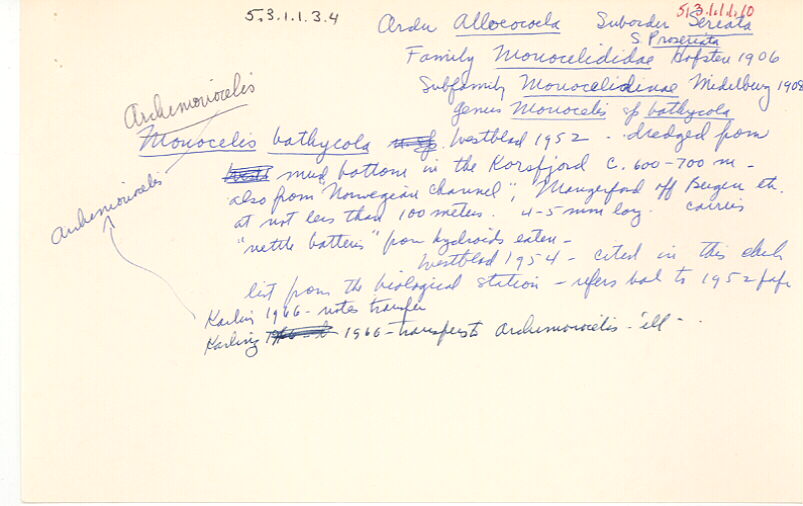 5.3.1.1.3.4
5.3.1.1.1.10
Order Alloeocoela Suborder Seriata
S. Proseriata
Family Monocelididae Hofsten 1906
Subfamily Monocelidinae Midelburg 1908
genus Monocelis sp bathycola
Archimonocelis
Monocelis bathycola Westblad 1952 - dredged from
mud bottom in the Korsfjord c. 600-700 m -
also from "Norwegian Channel", Mangerfjord off Bergen etc.
at not less than 100 meters. 4-5 mm long. carries
"nettle batteries" from hydroids eaten -
Westblad 1954 - cited in this
list from the biological station - refers back to 1952 paper
Archimonocelis
Karling 1966 - notes transfer
Karling 1966 - transfers to Archimonocelis - ill - .